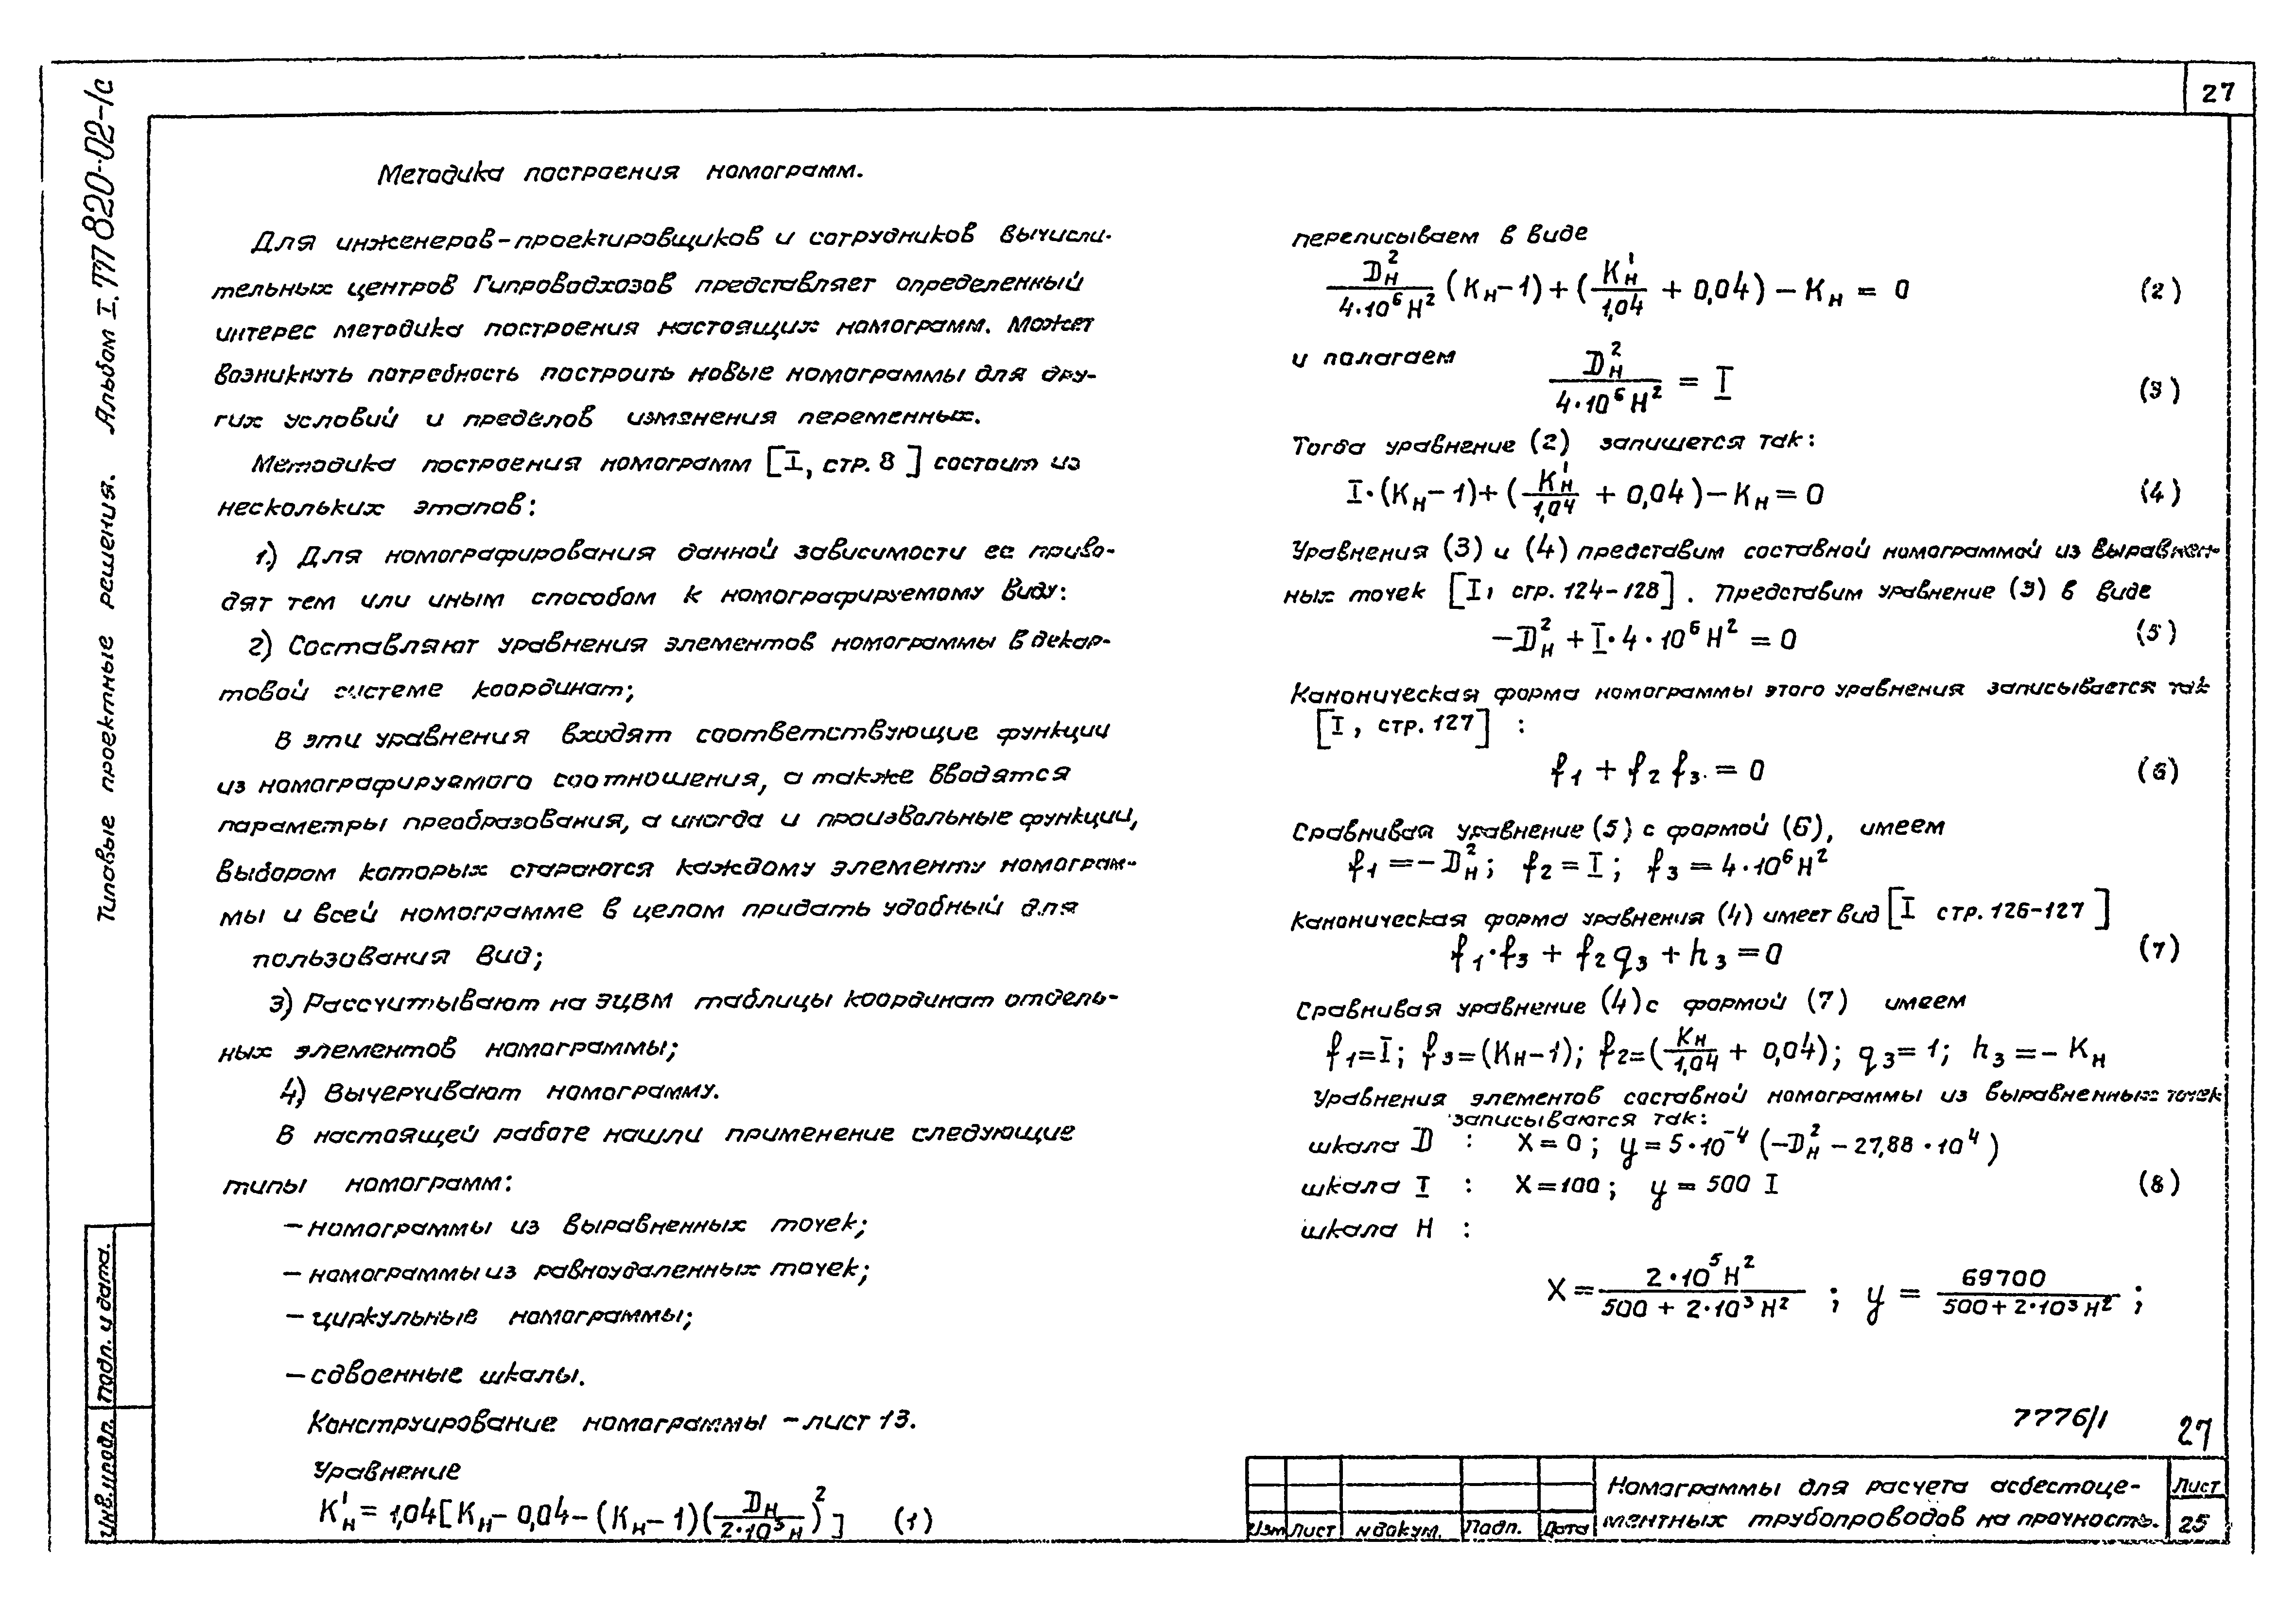 27
Типовые проектные решения. Альбом I. ТП 820-02-1с
Методика построения номограмм.
Для инженеров-проектировщиков и сотрудников вычисли-
тельных центров Гипроводхозов представляет определенный
интерес методика построения настоящих номограмм. Может
возникнуть потребность построить новые номограммы для дру-
гих условий и пределов изменения переменных.
Методика построения номограмм [I, стр. 8] состоит из
нескольких этапов:
1.) Для номографирования данной зависимости ее приво-
дят тем или иным способом к номографируемому виду:
2) Составляют уравнения элементов номограммы в декар-
товой системе координат;
В эти уравнения входят соответствующие функции
из номографируемого соотношения, а также вводятся
параметры преобразования, а иногда и произвольные функции,
выбором которых стараются каждому элементу номограм-
мы и всей номограмме в целом придать удобный для
пользования вид;
3) Рассчитывают на ЭЦВМ таблицы координат отдель-
ных элементов номограммы;
4) Вычерчивают номограмму.
В настоящей работе нашли применение следующие
типы номограмм:
– номограммы из выравненных точек;
– номограммы из равноудаленных точек;
– циркульные номограммы;
– сдвоенные шкалы.
Конструирование номограммы – лист 13.
Уравнение
K'н = 1,04[Kн – 0,04 – (Kн – 1)(Dн / 2·10³ H)²] (1)
переписываем в виде
D²н / 4·10⁶ H² (Kн – 1) + (K'н / 1,04 + 0,04) – Kн = 0 (2)
и полагаем D²н / 4·10⁶ H² = I (3)
Тогда уравнение (2) запишется так:
I·(Kн – 1) + (K'н / 1,04 + 0,04) – Kн = 0 (4)
Уравнения (3) и (4) представим составной номограммой из выравнен-
ных точек [I, стр. 124–128]. Представим уравнение (3) в виде
–D²н + I·4·10⁶ H² = 0 (5)
Каноническая форма номограммы этого уравнения записывается так
[I, стр. 127] :
f₁ + f₂ f₃ = 0 (6)
Сравнивая уравнение (5) с формой (6), имеем
f₁ = – D²н; f₂ = I; f₃ = 4·10⁶ H²
Каноническая форма уравнения (4) имеет вид [I стр. 126–127]
f₁·f₃ + f₂ q₃ + h₃ = 0 (7)
Сравнивая уравнение (4) с формой (7) имеем
f₁ = I; f₃ = (Kн – 1); f₂ = (Kн / 1,04 + 0,04); q₃ = 1; h₃ = – Kн
Уравнения элементов составной номограммы из выравненных точек
записываются так:
шкала D : X = 0; y = 5·10⁻⁴ (–D²н – 27,88·10⁴)
шкала I : X = 100; y = 500 I (8)
шкала H :
X = 2·10⁵ H² / 500 + 2·10³ H² ; y = 69700 / 500 + 2·10³ H² ;
7776/1 27
Инв. № подл. Подп. и дата.
Изм Лист № докум. Подп. Дата
Номограммы для расчета асбестоце-
ментных трубопроводов на прочность.
Лист
25